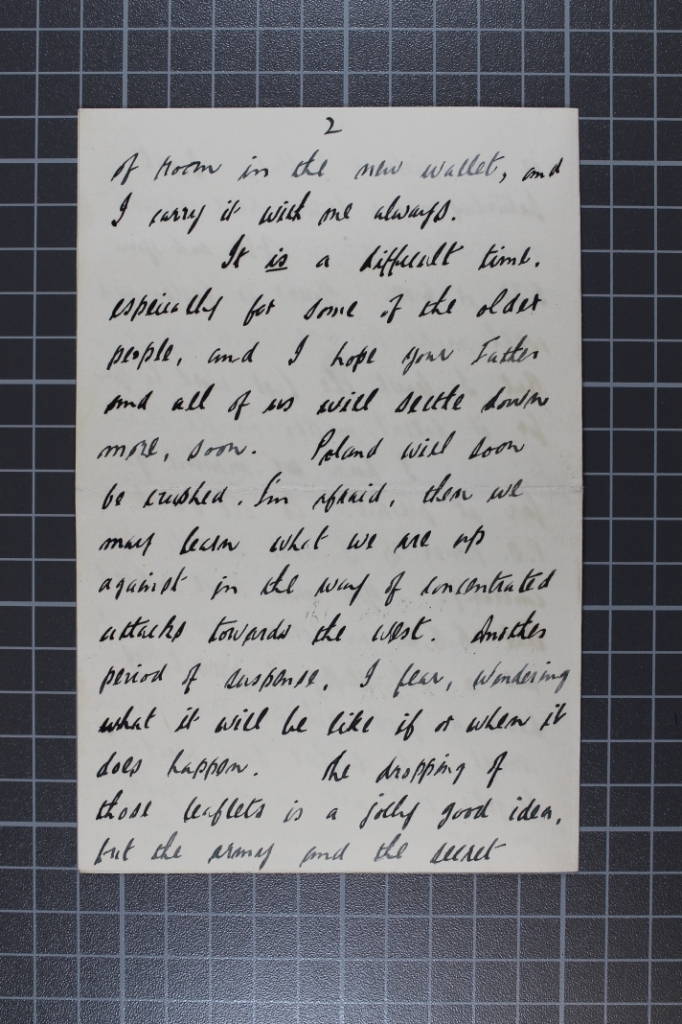 2
of room in the new wallet, and
I carry it with me always.
It is a difficult time.
especially for some of the older
people, and I hope your Father
and all of us will settle down
more, soon. Poland will soon
be crushed. I'm afraid, then we
may learn what we are up
against in the way of concentrated
attacks towards the west. Another
period of suspense, I fear, wondering
what it will be like if or when it
does happen. The dropping of
those leaflets is a jolly good idea,
but the army and the secret